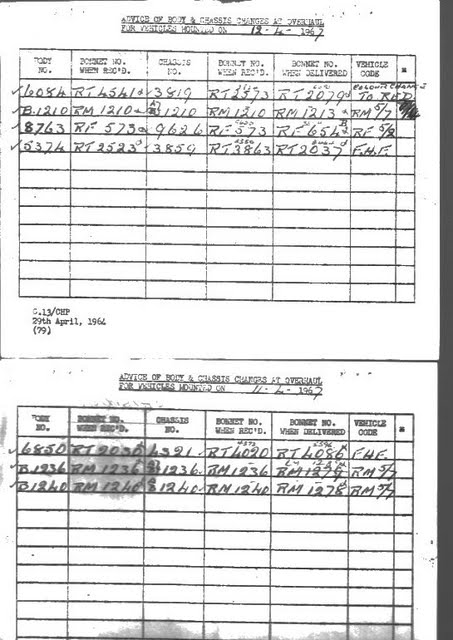 ADVICE OF BODY & CHASSIS CHANGES AT OVERHAUL
FOR VEHICLES MOUNTED ON 12-4-1967
BODY NO. BONNET NO. WHEN REC'D. CHASSIS NO. BONNET NO. WHEN REC'D. BONNET NO. WHEN DELIVERED VEHICLE CODE
6084 RT4541 3819 RT2573 RT2079 COLOUR CHANGE TO RED
B.1210 RM 1210 1210 RM 1210 RM 1213 RM 5/7
8763 RF 573 9626 RF 573 RF 654 RF 5/2
5374 RT2523 3859 RT3863 RT2037 F.H.F.
C.13/CHP
29th April, 1964
(79)
ADVICE OF BODY & CHASSIS CHANGES AT OVERHAUL
FOR VEHICLES MOUNTED ON 11-4-1967
BODY NO. BONNET NO. WHEN REC'D. CHASSIS NO. BONNET NO. WHEN REC'D. BONNET NO. WHEN DELIVERED VEHICLE CODE
6850 RT2030 4321 RT4020 RT4086 F.H.F.
B.1236 RM 1236 1236 RM 1236 RM 1279 RM 5/7
B1240 RM 1240 1240 RM 1240 RM 1278 RM 5/7